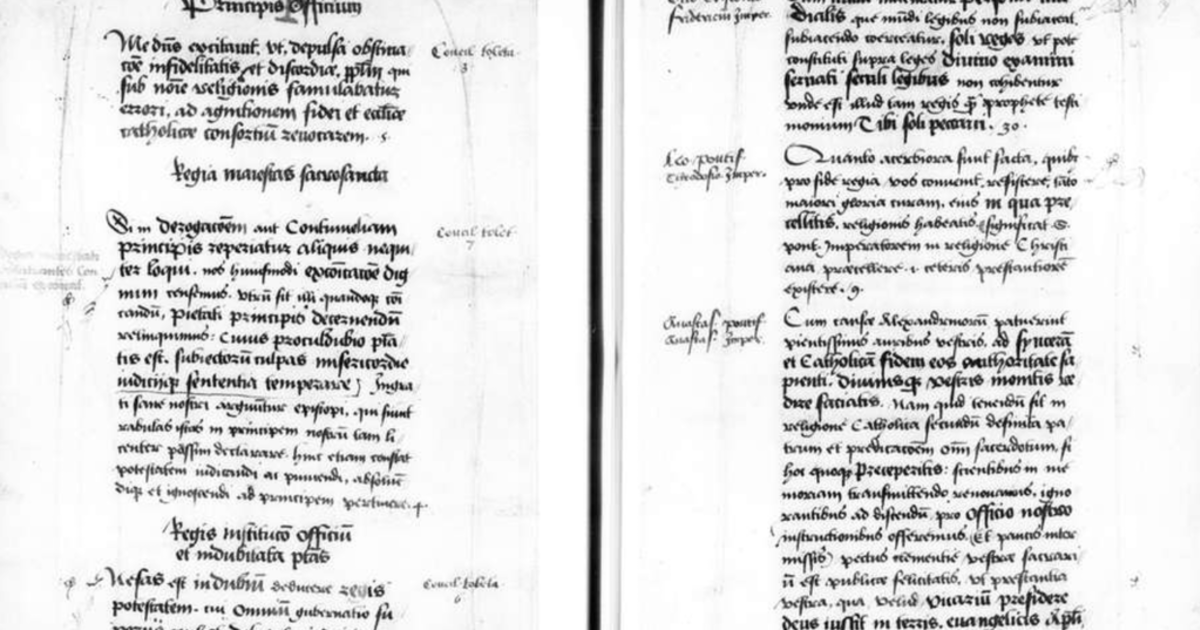 Principis Officium
Me dn̄s excitavit, vt, depulsa obstina
tōe infidelitatis et discordiæ, ppl̄m qui
sub nōie religionis famulabatur
errori, ad agnitionem fidei et eccliæ
catholicæ consortiū revocarem.
Concil toleta
3
Regia maiestas sacrosancta
Si in derogatōem aut Contumeliam
principis reperiatur aliquis nequi
ter loqui, nos huiusmodi excōicatōe dig
num censemus. vtrū sit illi quandoqȝ cōi
candū, pietati principis decernendū
relinquimus: Cuius proculdubio pt̄a
tis est, subiectorū culpas misericordie
iudicijqȝ sententia temperare) Ingra
ti sane nostri arguūtur episcopi, qui sinūt
rabulas istos in principem nostrū tam li
center passim declamare. hinc etiam constat
potestatem iudicandi ac puniendi, absolvē
diqȝ et ignoscendi ad principem pertinere.
Concil tolet
7
Regis institucō officiū
et indubitata pt̄as
Nefas est in dubiū deducere regis
potestatem. cui Omniū gubernatio su
Concil toleta
6
Federicū Imper.
dicialis que mūdi legibus non subiaceat,
subiacendo coerceatur. soli reges vt pote
constituti supra leges divino examini
servati seculi legibus non cohibentur
vnde est illud tam regis qȝ prophete testi
monium Tibi soli peccavi. 30.
Leo pontif.
Theodosio Imper.
Quanto acerbiora sunt facta, quibȝ
pro fide regia vos convenit resistere, tāto
maiori gloria curam, eius in qua præ
cellitis, religionis habeatis (significat S.
pont. Imperatorem in religione Christi
ana præcellere .i. ceteris præstantiorē
existere. 9.
Anastas. pontif.
Anastas. Imper.
Cum causæ Alexandrinorū patuerint
pientissimis auribus vestris, ad synceram
et Catholicam fidem eos authoritate sa
pienti, divinisqȝ vestris monitis re
dire faciatis. Nam quid tenendū sit in
religione Catholica secundū definita pa
trum et predicatōem om̄i sacerdotum, si
hoc quoqȝ Præceperitis: scientibus in me
moriam transmittendo renovamus, igno
rantibus ad discendū, pro officio nostro
instructionibus offeremus. (Et paucis inter
missis) pectus clementiæ vestræ sacrari
ū est publicæ felicitatis, vt præstantia
vestra, qua velud vicariū præsidere
deus iussit in terris, evangelicis Apl̄i